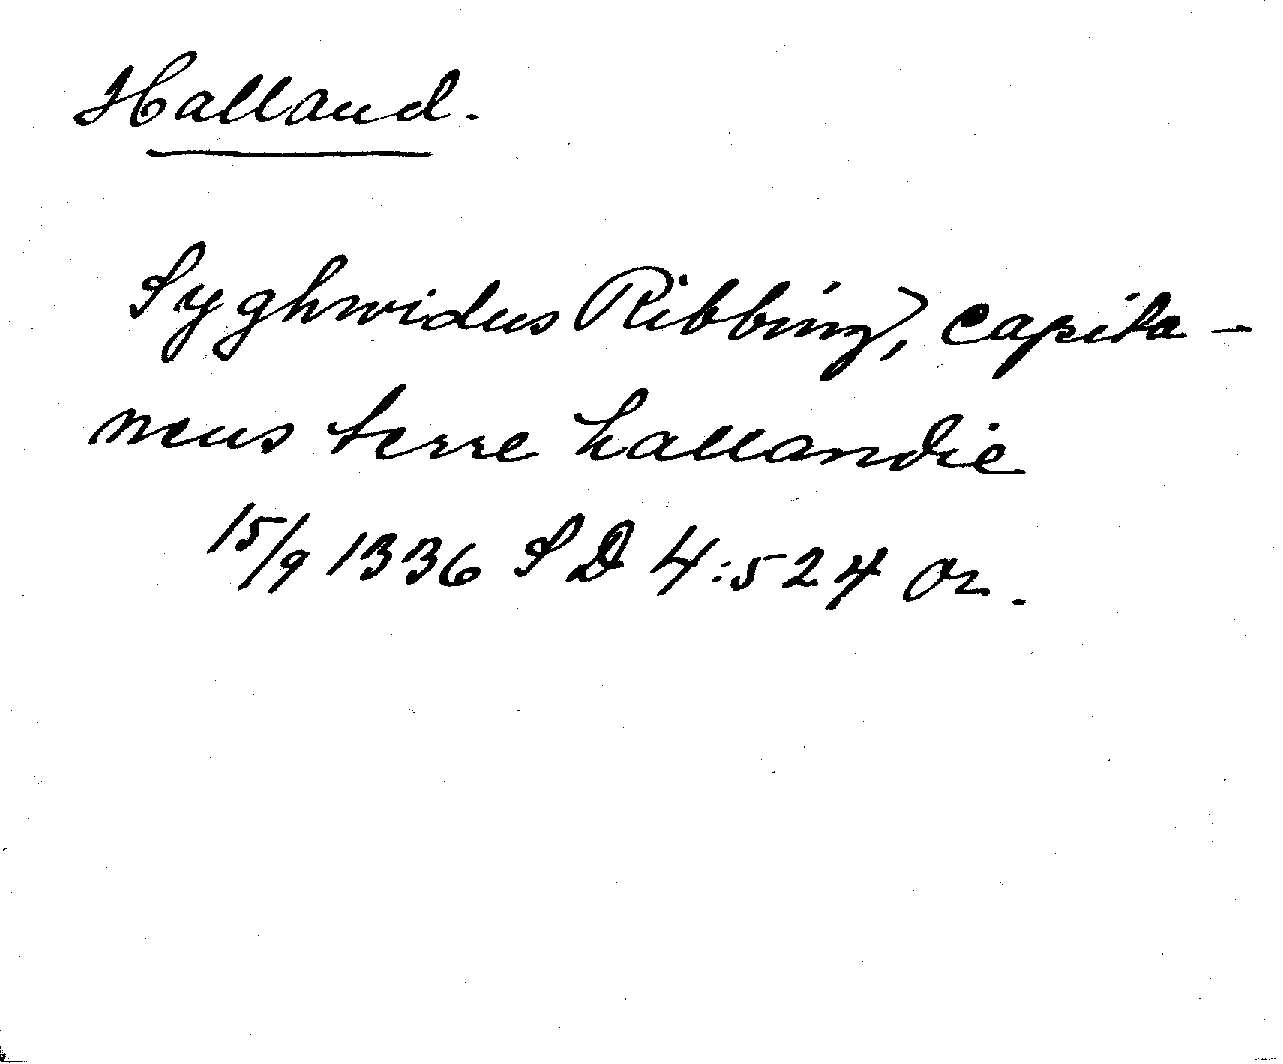 Halland.
Syghwidus Ribbing, capita-
neus terre hallandie
15/9 1336 SD 4:524 or.